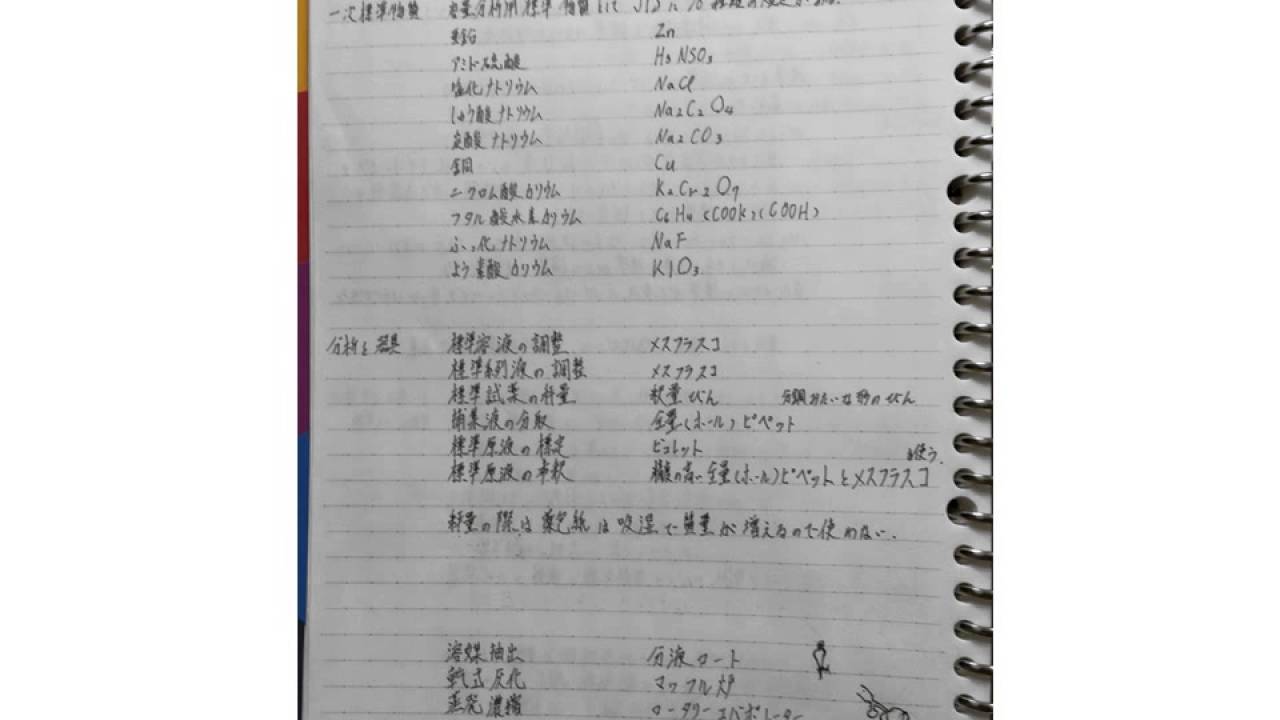 一次標準物質 容量分析用標準物質としてJISに10種類の規定がある.
亜鉛 Zn
アミド硫酸 H3NSO3
塩化ナトリウム NaCl
しゅう酸ナトリウム Na2C2O4
炭酸ナトリウム Na2CO3
銅 Cu
ニクロム酸カリウム K2Cr2O7
フタル酸水素カリウム C6H4(COOK)(COOH)
ふっ化ナトリウム NaF
よう素酸カリウム KIO3
分析と器具 標準溶液の調整 メスフラスコ
標準系列液の調整 メスフラスコ
標準試薬の秤量 秤量びん 分銅みたいな形のびん
捕集液の分取 全量(ホール)ピペット
標準原液の標定 ビュレット
標準原液の希釈 精度の高い全量(ホール)ピペットとメスフラスコ を使う.
秤量の際は薬包紙は吸湿で質量が増えるので使わない.
溶媒抽出 分液ロート
乾式灰化 マッフル炉
蒸発濃縮 ロータリーエバポレーター